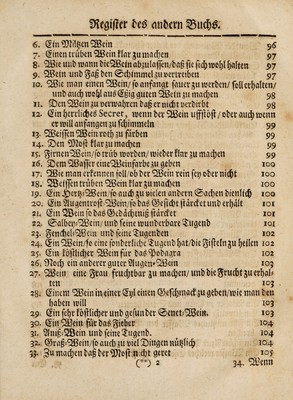 Register des andern Buchs.
6. Ein Miltzen Wein 96
7. Einen trüben Wein klar zu machen 97
8. Wie und wann die Wein abzulassen/ daß sie sich wohl halten 97
9. Wein und Faß den Schimmel zu vertreiben 97
10. Wie man einen Wein/ so anfangt sauer zu werden/ soll erhalten/
und auch wohl aus Eßig guten Wein zu machen 98
11. Den Wein zu verwahren daß er nicht verdirbt 98
12. Ein herrliches Secret, wenn der Wein uffstöst/ oder auch wenn
er will anfangen zu schimmeln 99
13. Weissen Wein roth zu färben 99
14. Den Most klar zu machen 99
15. Firnen Wein/ so trüb worden/ wieder klar zu machen 99
16. Dem Wasser eine Weinfarbe zu geben 100
17. Wie man erkennen soll/ ob der Wein rein sey oder nicht 100
18. Weissen trüben Wein klar zu machen 100
19. Ein Hertz-Wein/ so auch zu vielen andern Sachen dienlich 100
20. Ein Augentrost-Wein/ so das Gesicht stärcket und erhält 101
21. Ein Wein so das Gedächtniß stärcket 101
22. Salbey-Wein/ und seine wunderbare Tugend 101
23. Fenchel-Wein und seine Tugenden 102
24. Ein Wein/ so eine sonderliche Tugend hat/ die Fisteln zu heilen 102
25. Ein köstlicher Wein für das Podagra 102
26. Noch ein anderer guter Augen-Wein 102
27. Wein eine Frau fruchtbar zu machen/ und die Frucht zu erhal-
ten 103
28. Einem Wein in einer Eyl einen Geschmack zu geben/ wie man den
haben will 103
29. Ein sehr köstlicher und gesunder Senet-Wein. 103
30. Ein Wein für das Fieber 104
31. Nuß-Wein und seine Tugend. 104
32. Graß-Wein/ so auch zu viel Dingen nützlich 104
33. Zu machen daß der Most nicht geret 105
(**) 2 34. Wenn